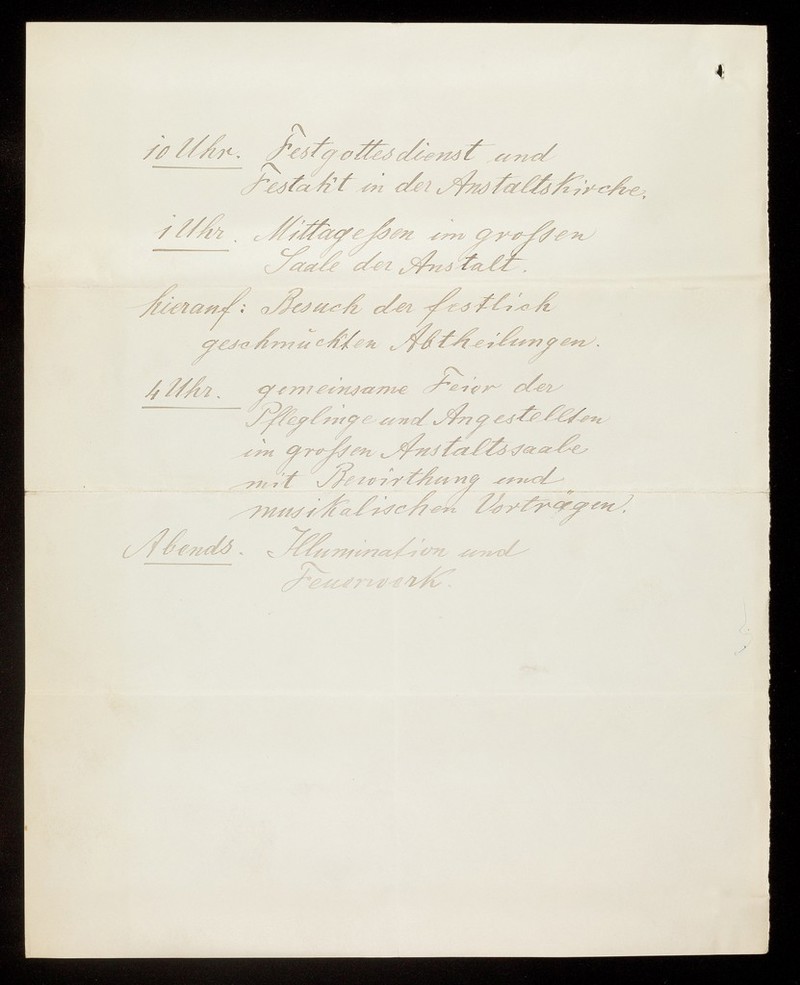 10 Uhr. Festgottesdienst und
Festakt in der Anstaltskirche.
1 Uhr. Mittagessen im grossen
Saale der Anstalt.
hierauf: Besuch der festlich
geschmückten Abtheilungen.
4 Uhr. gemeinsame Feier der
Pfleglinge und Angestellten
im grossen Anstaltssaale
mit Bewirthung und
musikalischen Vorträgen.
Abends. Illumination und
Feuerwerk.